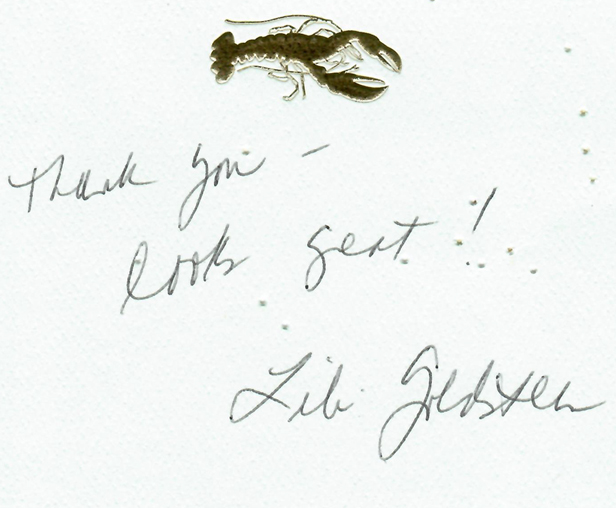 Thank you -
looks great!
Libi Goldstein